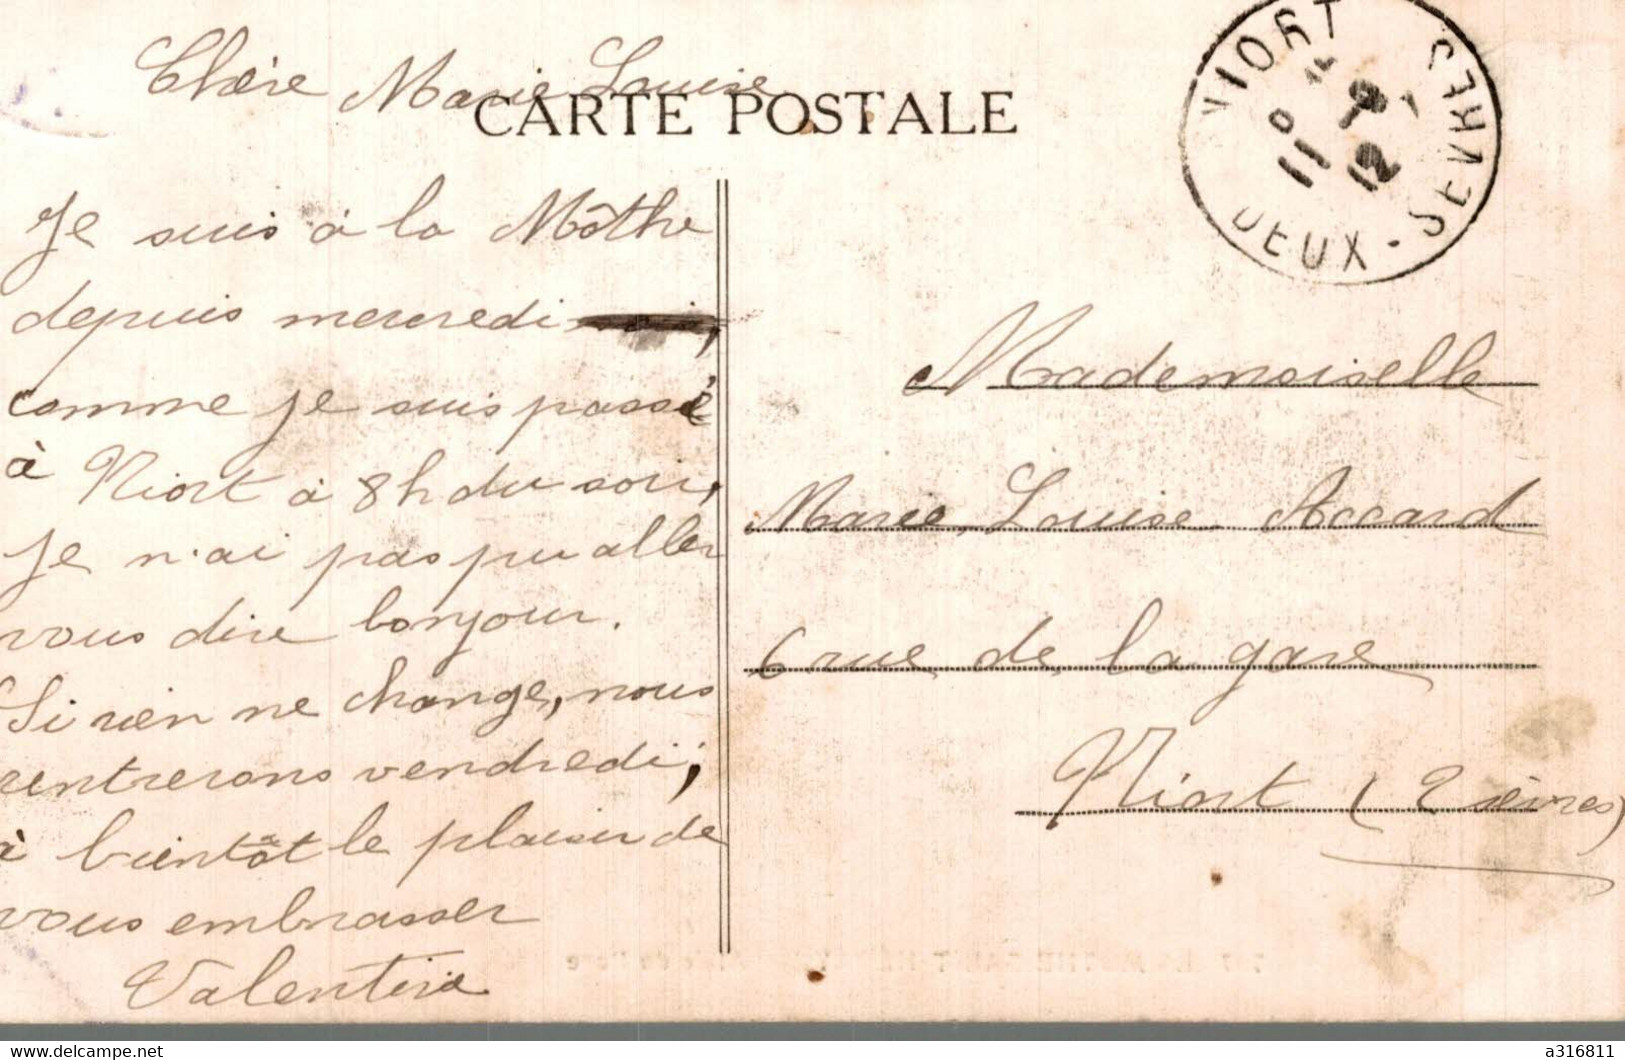 Chère Marie Louise
CARTE POSTALE
Je suis à la Môthe
depuis mercredi,
comme je suis passé
à Niort à 8h du soir,
je n'ai pas pu aller
vous dire bonjour.
Si rien ne change, nous
rentrerons vendredi;
à bientôt le plaisir de
vous embrasser
Valentine
NIORT
11
9
12
DEUX-SEVRES
Mademoiselle
Marie Louise Accard
6 rue de la gare
Niort (2 sèvres)
https://www.delcampe.net
a316811